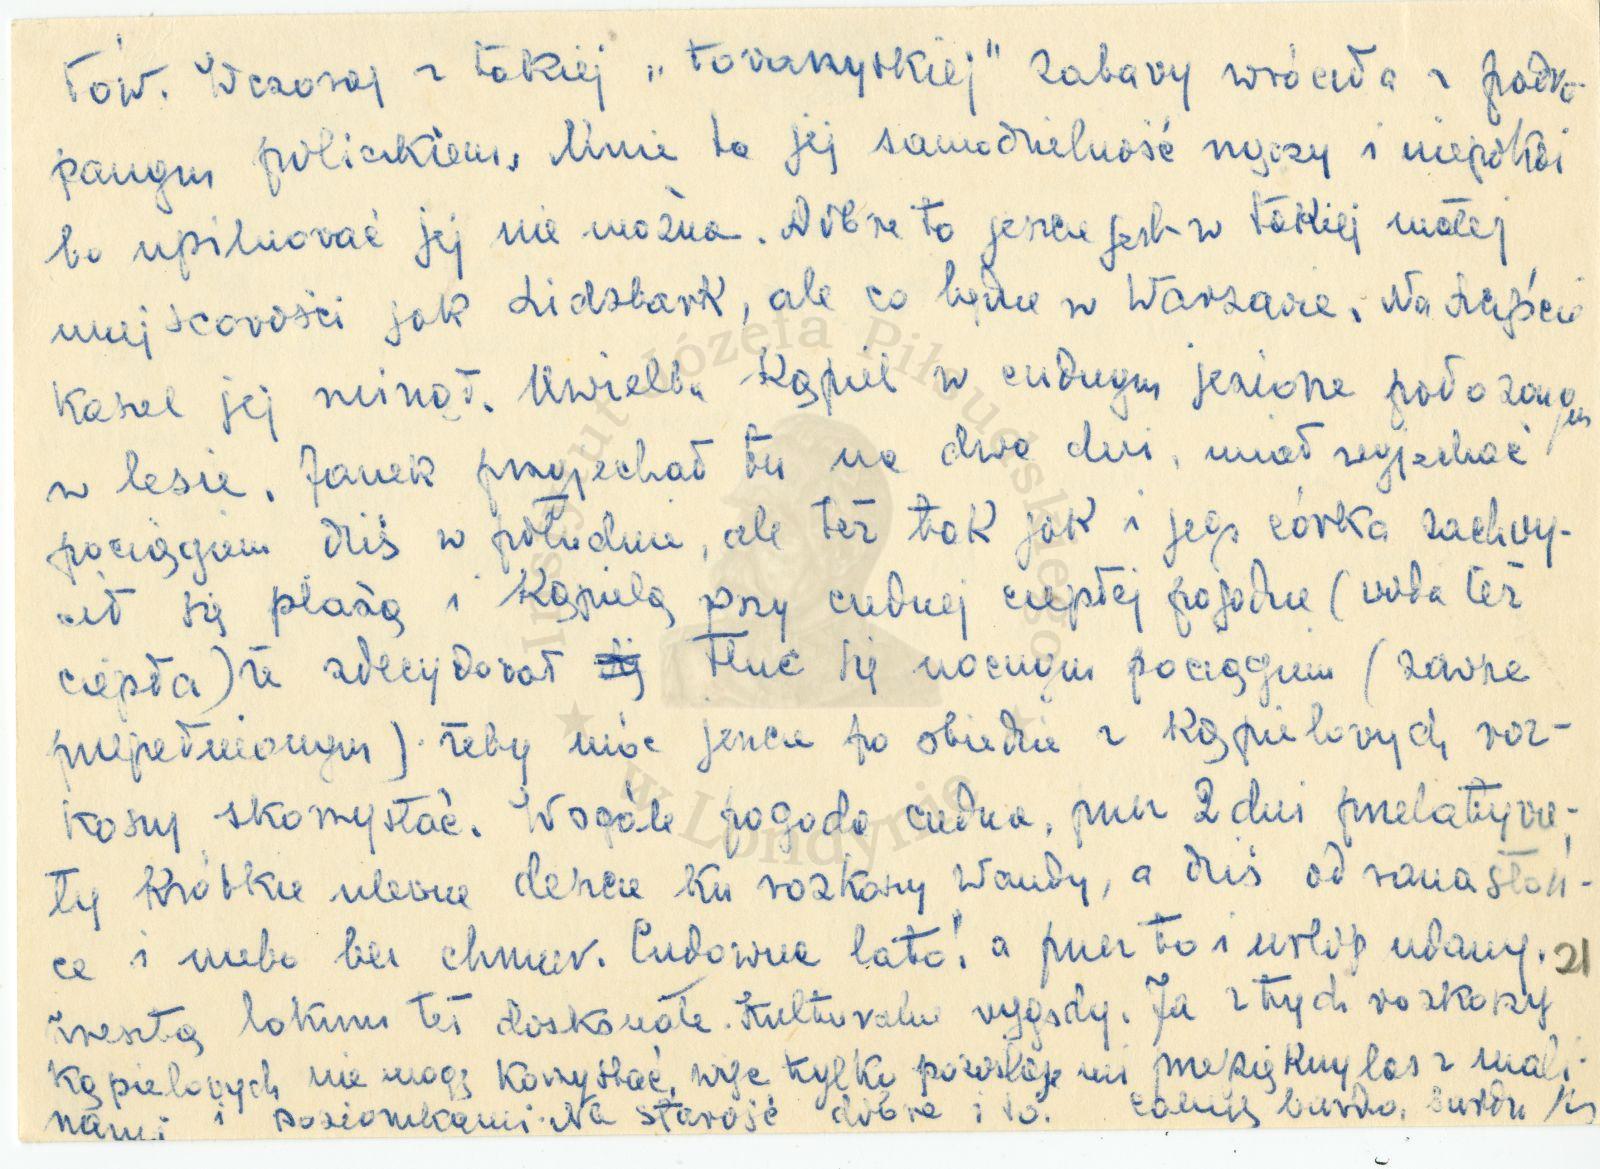 tów. Wczoraj z takiej „towarzyskiej" zabawy wróciła z podra-
panym policzkiem. Mnie ta jej samodzielność męczy i niepokoi
bo upilnować jej nie można. Dobrze to jeszcze jest w takiej małej
miejscowości jak Lidzbark, ale co będzie w Warszawie. Na szczęście
kaszel jej minął. Uwielbia kąpiel w cudnym jeziorze położonym
w lesie. Janek przyjechał tu na dwa dni, miał wyjechać
pociągiem dziś w południe, ale też tak jak i jego córka zachwy-
cił się plażą i kąpielą przy cudnej ciepłej pogodzie (woda też
ciepła) że zdecydował się tłuc się nocnym pociągiem (zawsze
przepełnionym) żeby móc jeszcze po obiedzie z kąpielowych roz-
koszy skorzystać. Wogóle pogoda cudna, przez 2 dni przelatywa-
ły krótkie ulewne deszcze ku rozkoszy Wandy, a dziś od rana słoń-
ce i niebo bez chmur. Cudowne lato! a przez to i urlop udany. 21
Zresztą lokum też doskonałe. Kulturalne wygody. Ja z tych rozkoszy
kąpielowych nie mogę korzystać, więc tylko pozostaje mi przepiękny las z mali-
nami i poziomkami. Na starość dobre i to. Całuję bardzo, bardzo
Instytut Józefa Piłsudskiego
w Londynie